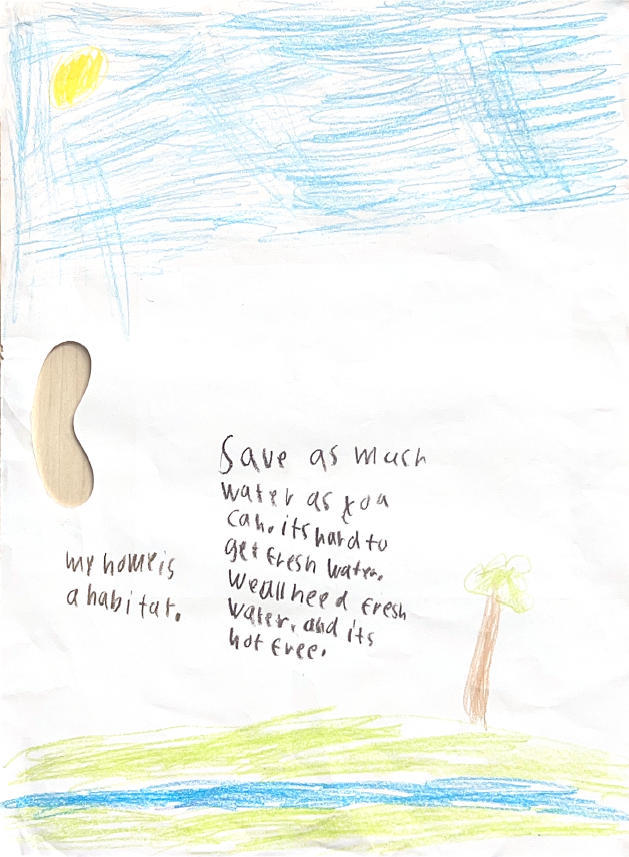 Save as much
water as you
can. its hard to
get fresh water.
We all need fresh
water. and its
not free.
my home is
a habitat.